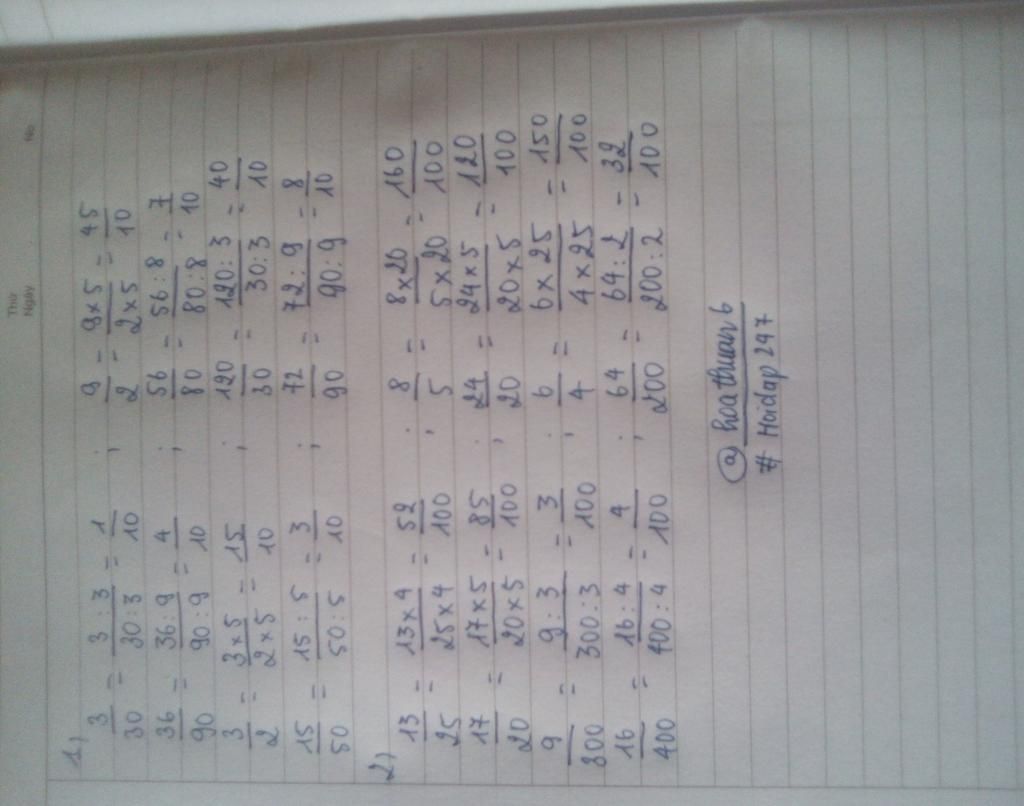 Thứ
Ngày
No
1) 3/30 = 3:3/30:3 = 1/10 ; 9/2 = 9×5/2×5 = 45/10
36/90 = 36:9/90:9 = 4/10 ; 56/80 = 56:8/80:8 = 7/10
3/2 = 3×5/2×5 = 15/10 ; 120/30 = 120:3/30:3 = 40/10
15/50 = 15:5/50:5 = 3/10 ; 72/90 = 72:9/90:9 = 8/10
2) 13/25 = 13×4/25×4 = 52/100 ; 8/5 = 8×20/5×20 = 160/100
17/20 = 17×5/20×5 = 85/100 ; 24/20 = 24×5/20×5 = 120/100
9/300 = 9:3/300:3 = 3/100 ; 6/4 = 6×25/4×25 = 150/100
16/400 = 16:4/400:4 = 4/100 ; 64/200 = 64:2/200:2 = 32/100
@ hoathuan6
# Hoidap247